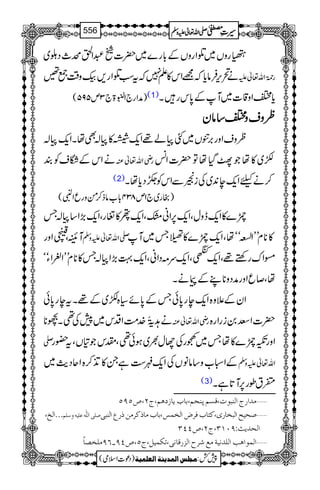 سیرتِ مصطفیٰ صلی اللہ تعالیٰ علیہ وسلم
556
ہتھیاروں میں تلواروں کے بارے میں حضرت شیخ عبدالحق محدث دہلوی
رحمۃ اللہ تعالیٰ علیہ نے تحریر فرمایا کہ مجھے اس کا علم نہیں کہ یہ سب تلواریں بیک وقت جمع تھیں
یا مختلف اوقات میں آپ کے پاس رہیں۔ (1) (مدارج النبوۃ ج۲ ص۵۹۵)
ظروف و مختلف سامان
ظروف اور برتنوں میں کئی پیالے تھے ایک شیشہ کا پیالہ بھی تھا۔ ایک پیالہ
لکڑی کا تھا جو پھٹ گیا تھا تو حضرت انس رضی اللہ تعالیٰ عنہ نے اس کے شگاف کو بند
کرنے کیلئے ایک چاندی کی زنجیر سے اس کو جکڑ دیا تھا۔ (2)
(بخاری ج۱ ص۴۳۸ باب ما ذکر من ورع النبی)
چمڑے کا ایک ڈول، ایک پرانی مشک، ایک پتھر کا تغار، ایک بڑا سا پیالہ جس
کا نام ”السعہ“ تھا، ایک چمڑے کا تھیلا جس میں آپ صلی اللہ تعالیٰ علیہ وسلم آئینہ، قینچی اور
مسواک رکھتے تھے، ایک کنگھی، ایک سرمہ دانی، ایک بہت بڑا پیالہ جس کا نام ”الغراء“
تھا، صاع اور مد دو ناپنے کے پیمانے۔
ان کے علاوہ ایک چارپائی جس کے پائے سیاہ لکڑی کے تھے۔ یہ چارپائی
حضرت اسعد بن زرارہ رضی اللہ تعالیٰ عنہ نے ہدیۃً خدمت اقدس میں پیش کی تھی۔ بچھونا
اور تکیہ چمڑے کا تھا جس میں کھجور کی چھال بھری ہوئی تھی، مقدس جوتیاں، یہ حضور صلی
اللہ تعالیٰ علیہ وسلم کے اسباب و سامانوں کی ایک فہرست ہے جن کا تذکرہ احادیث میں
متفرق طور پر آتا ہے۔ (3)
مدارج النبوت، قسم پنجم، باب یازدھم، ج۲، ص۵۹۵
صحیح البخاری، کتاب فرض الخمس، باب ماذکر من درع النبی صلی اللہ علیہ وسلم...الخ،
الحدیث:۳۱۰۹، ج۲، ص۳۴۴
المواھب اللدنیۃ مع شرح الزرقانی، تکمیل، ج۵، ص۹۴۔۹۶ ملخصاً
پیش کش: مجلس المدینۃ العلمیۃ (دعوتِ اسلامی)